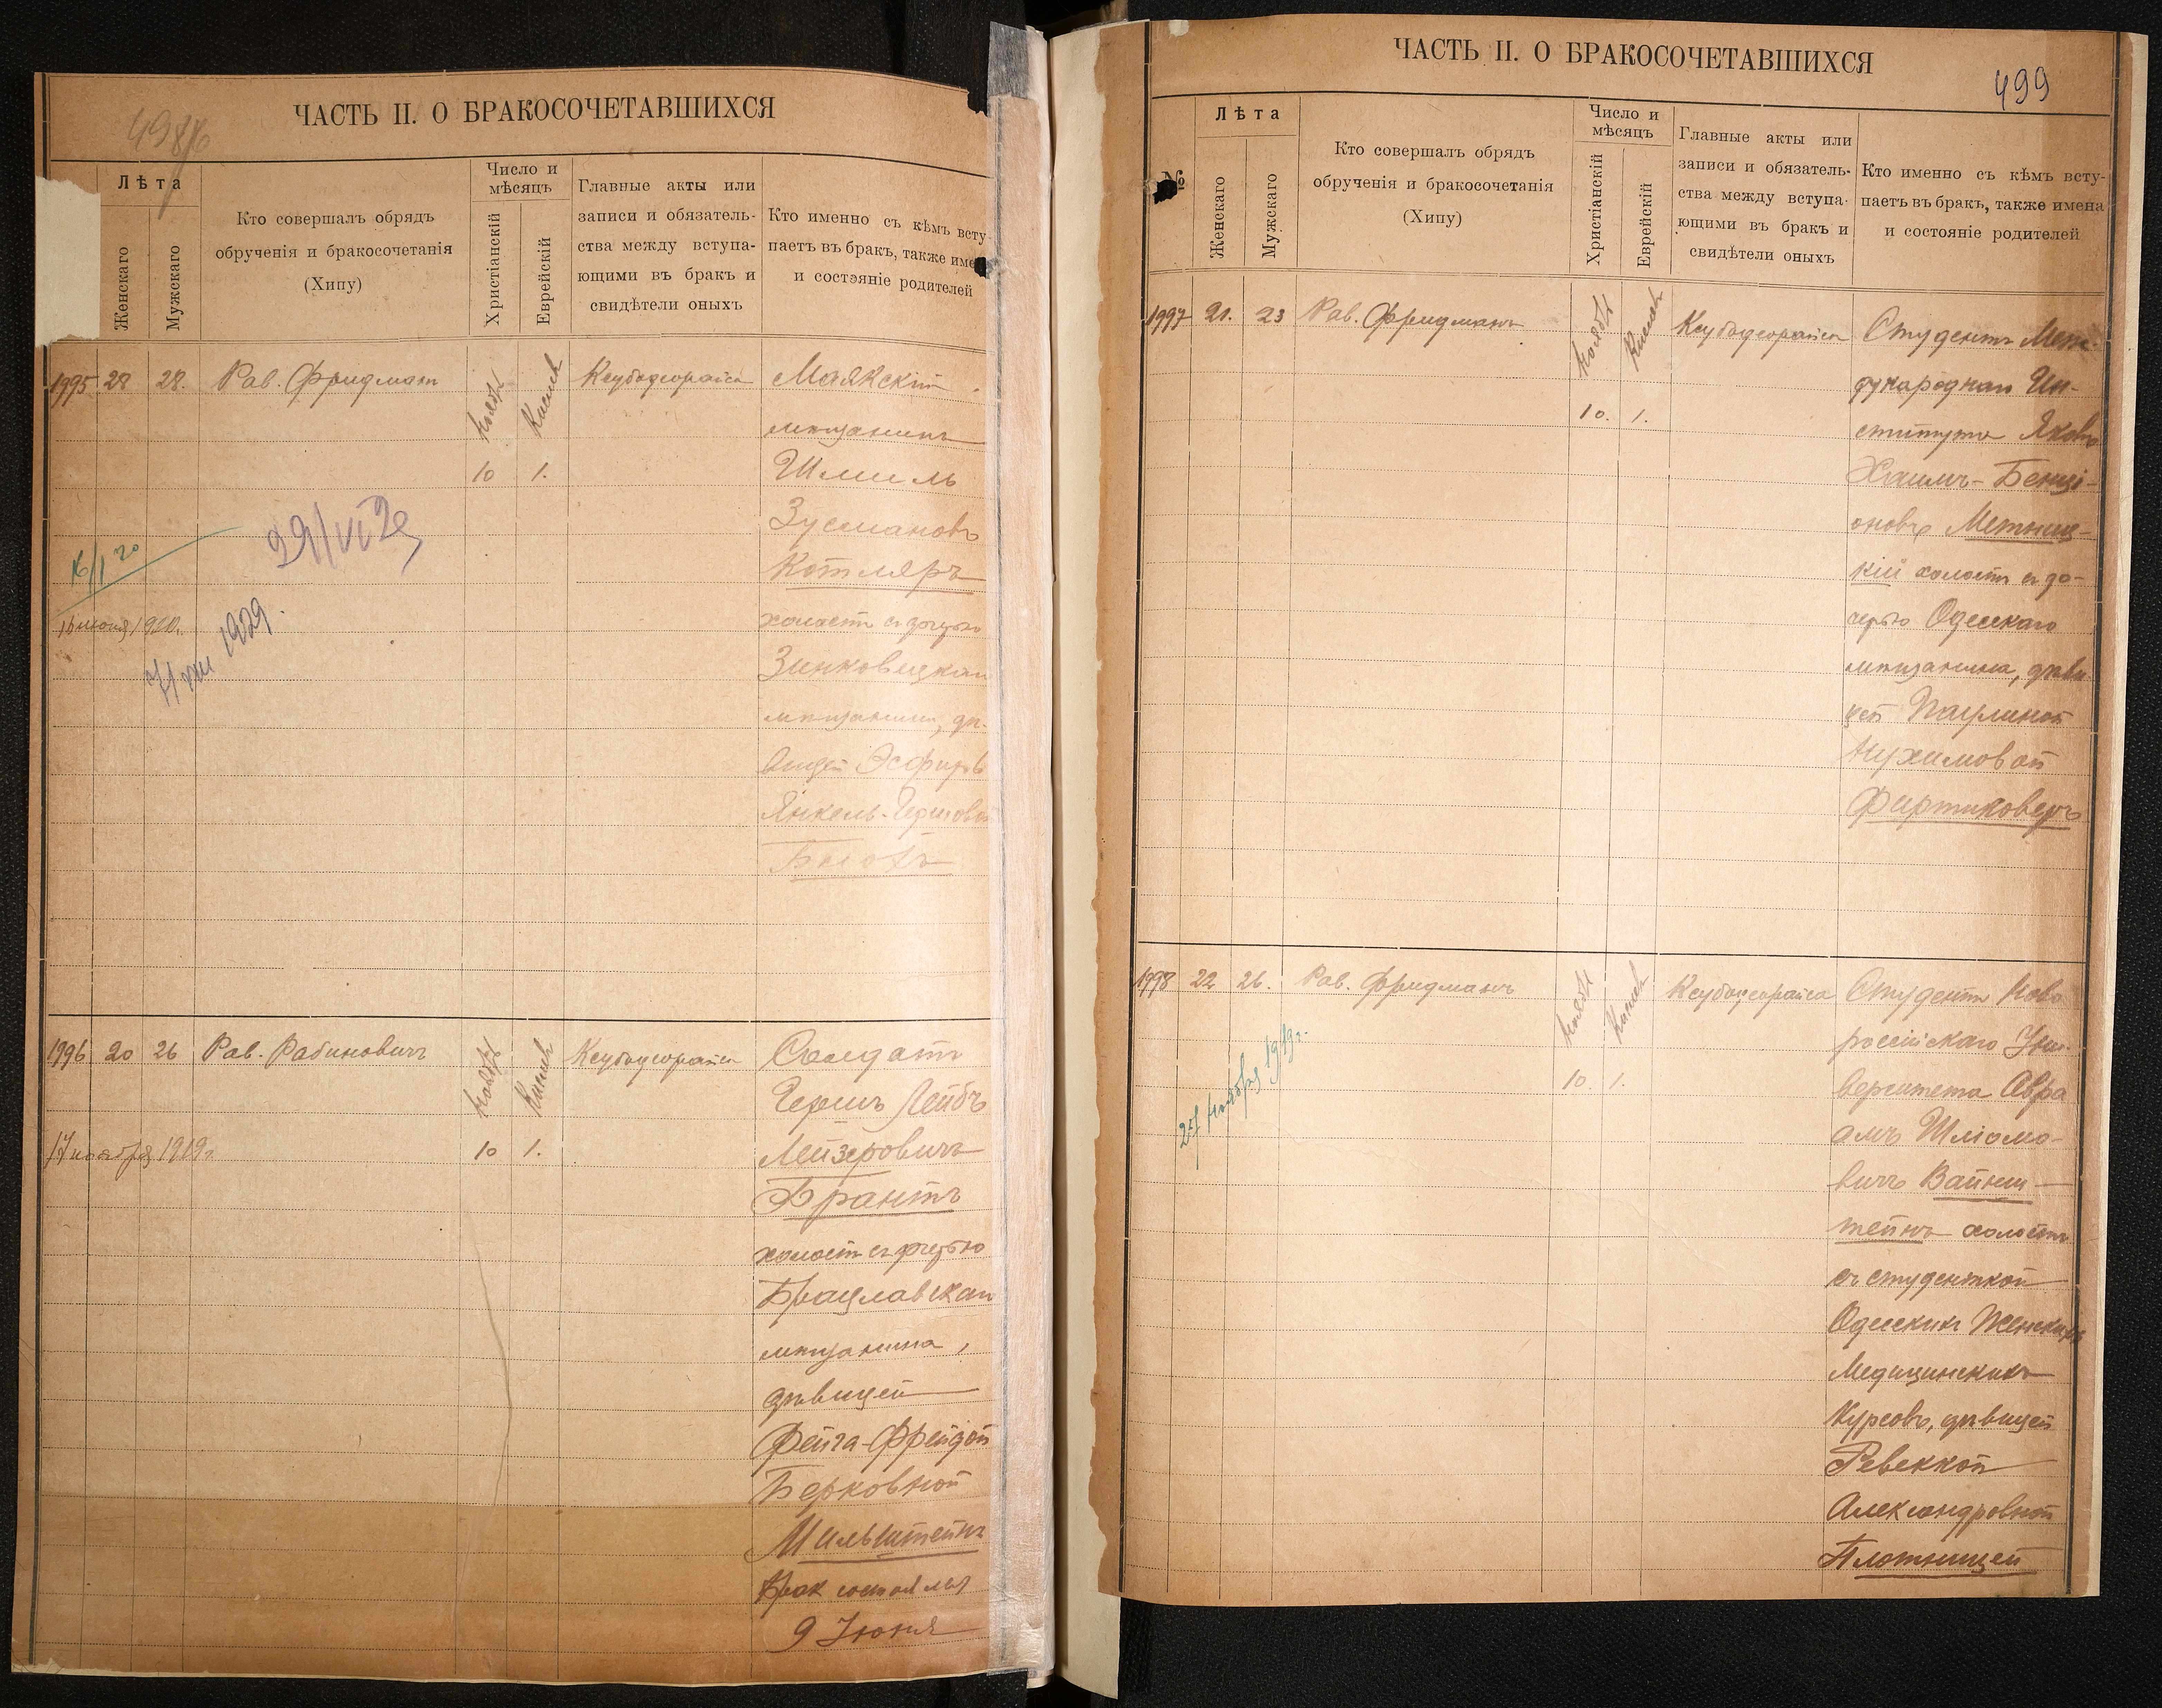 ЧАСТЬ II. О БРАКОСОЧЕТАВШИХСЯ
Лѣта
Женскаго
Мужскаго
Кто совершалъ обрядъ
обрученія и бракосочетанія
(Хипу)
Число и
мѣсяцъ
Христіанскій
Еврейскій
Главные акты или
записи и обязатель-
ства между вступа-
ющими въ бракъ и
свидѣтели оныхъ
Кто именно съ кѣмъ всту-
паетъ въ бракъ, также име
и состояніе родителей
1995 28 28. Рав. Фридман
Ноября
Кислев
10 1.
Маякскій
мѣщанинъ
Шмиль
Зусмановъ
Котляръ
холостъ съ дочерью
Зинковецкаго
мѣщанина, дѣ-
вицей Эсфирь
Янкель-Гершовой
29/VI 29
16/I 20
16 июня 1920.
1929.
1996 20 26 Рав. Рабиновичъ
Ноября
Кислев
10 1.
17 ноября 1919г.
Солдатъ
Гершъ Лейбъ
Лейзеровичъ
Франтъ
холостъ съ дочерью
Брацлавскаго
мѣщанина,
дѣвицей
Фейга-Фрейдой
Берковной
Мильштейнъ
Брак состоялся
9 Июня
ЧАСТЬ II. О БРАКОСОЧЕТАВШИХСЯ
499
№
Лѣта
Женскаго
Мужскаго
Кто совершалъ обрядъ
обрученія и бракосочетанія
(Хипу)
Число и
мѣсяцъ
Христіанскій
Еврейскій
Главные акты или
записи и обязатель-
ства между вступа-
ющими въ бракъ и
свидѣтели оныхъ
Кто именно съ кѣмъ всту-
паетъ въ бракъ, также имена
и состояніе родителей
1997 21. 23 Рав. Фридманъ
Ноября
Кислев
10. 1.
Студентъ Меж-
дународнаго Ин-
ститута Яковъ
Хаимъ-Бенці-
оновъ Метниц-
кій холостъ съ до-
черью Одесскаго
мѣщанина, дѣви
цей Паулиной
Нухимовой
1998 22 26. Рав. Фридманъ
Ноября
Кислев
10. 1.
27 ноября 1919г.
Студентъ Ново
россійскаго Уни-
верситета Авра
амъ Шліомо-
вичъ Вайнш-
тейнъ холостъ
съ студенткой
Одесскихъ Женскихъ
Медицинскихъ
Курсовъ, дѣвицей
Ревеккой
Александровной
Плотницей